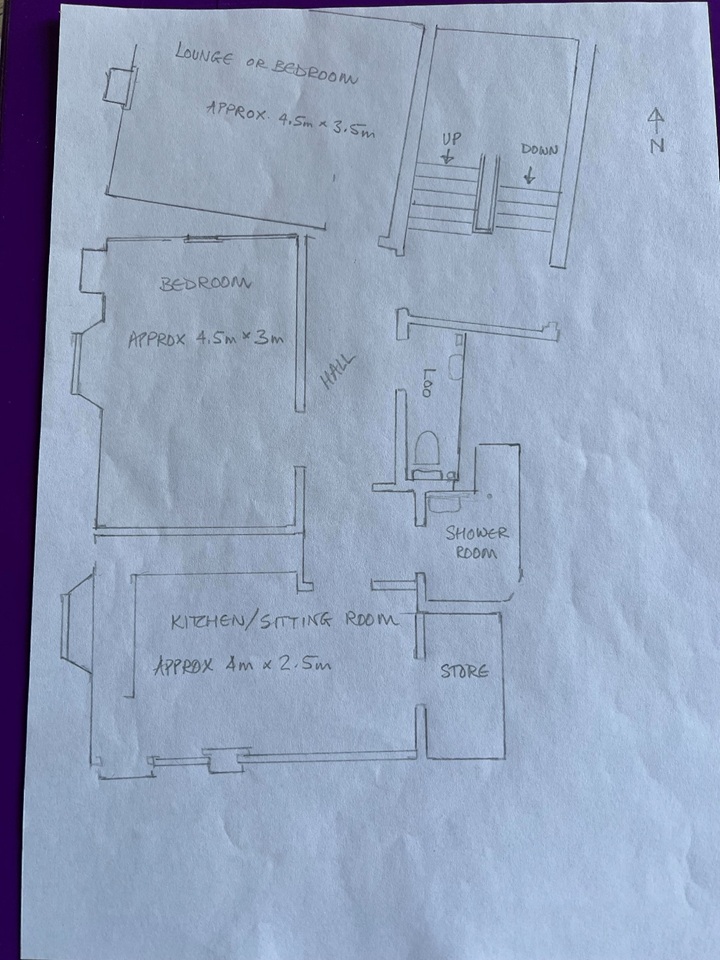 LOUNGE OR BEDROOM
APPROX. 4.5m × 3.5m
UP
DOWN
N
BEDROOM
APPROX 4.5m × 3m
HALL
LOO
SHOWER
ROOM
KITCHEN/SITTING ROOM
APPROX 4m × 2.5m
STORE